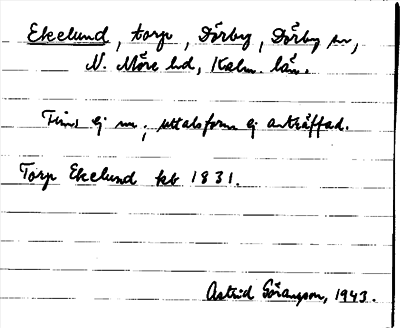 Ekelund, torp, Dörby, Dörby sn,
N. Möre hd, Kalm. län.
Finns ej nu; uttalsform ej anträffad.
Torp Ekelund kb 1831.
Astrid Göransson, 1943.